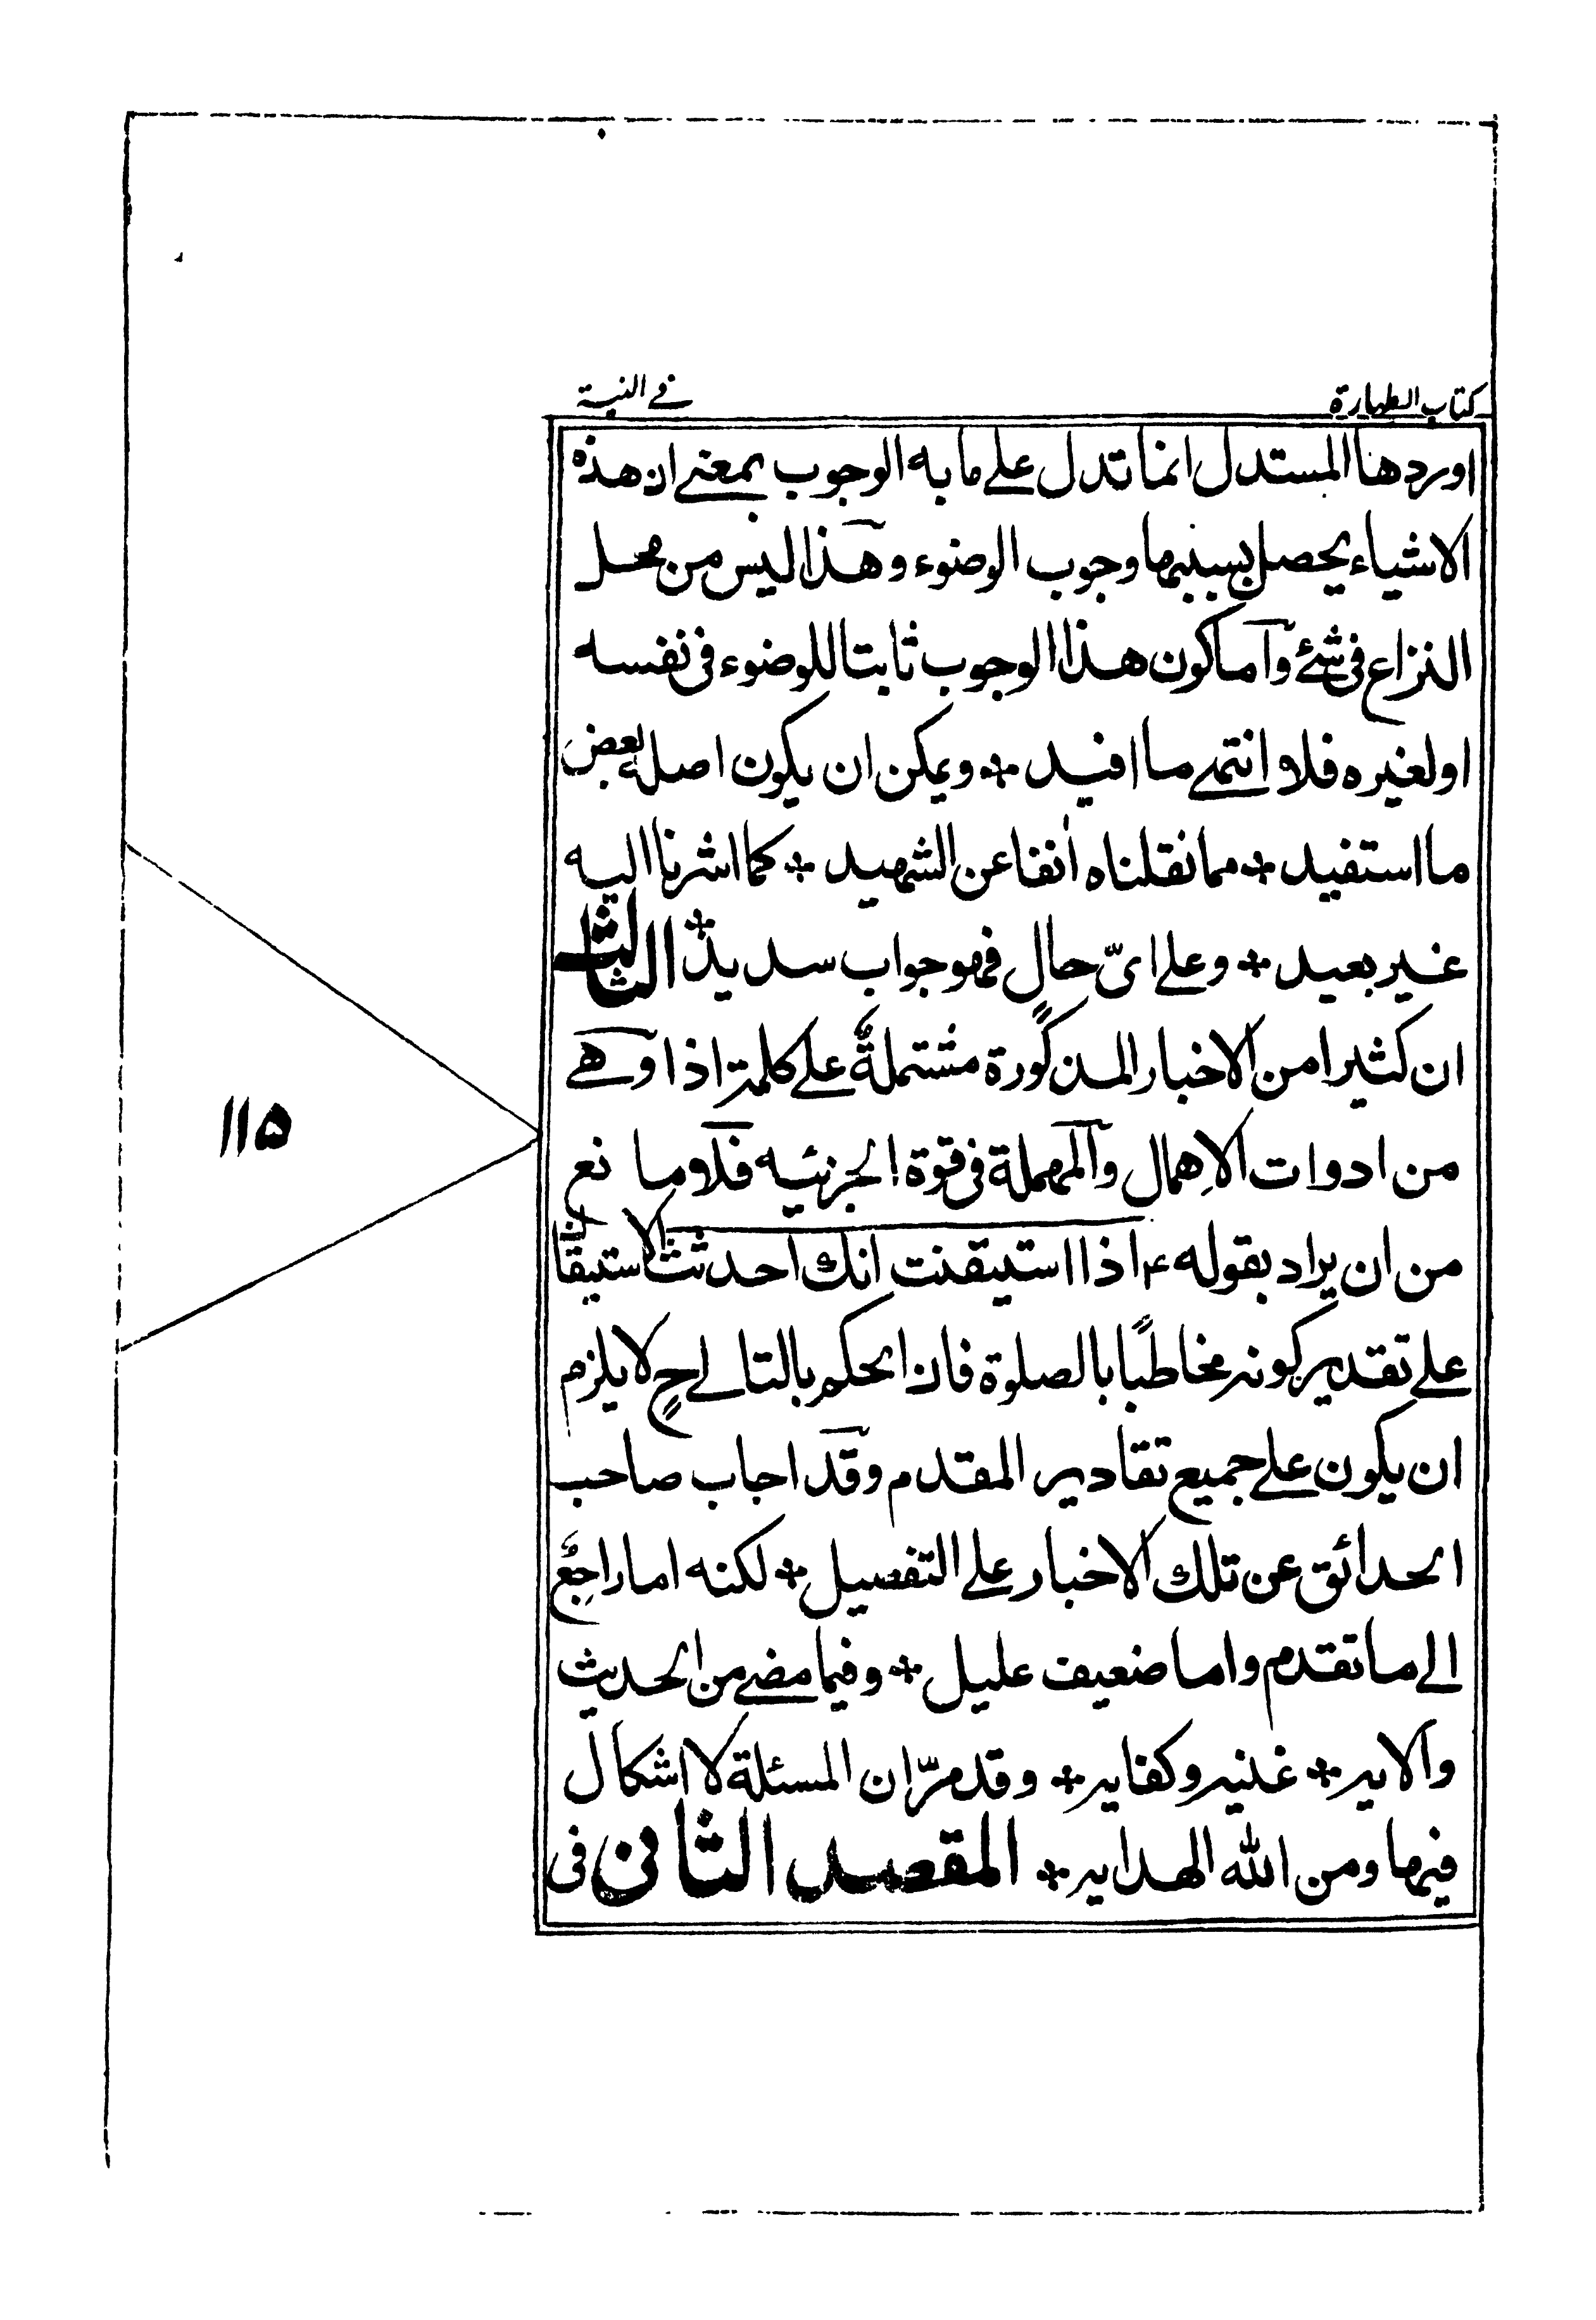 كتاب الطهارة
في النية
اوردها المستدل انما تدل على ما به الوجوب بمعنى ان هذه
الاشياء يحصل بسببها وجوب الوضوء وهذا ليس من محل
النزاع في شئ وآما كون هذا الوجوب ثابتا للوضوء في نفسه
او لغيره فلا و انتهى ما افيد * ويمكن ان يكون اصله بعض
ما استفيد * مما نقلناه اٰنفا عن الشهيد * كما اشرنا اليه
غير بعيد * وعلى اىّ حالٍ فهو جواب سديد * الثالث
ان كثيرا من الاخبار المذكورة مشتملةٌ على كلمة اذا وهى
من ادوات الاِهمال والمهملة فى قوة الجزئيه فلا ومانع
من ان يراد بقوله ع اذا استيقنت انك احدثت الاستيقان
على تقدير كونه مخاطبًا بالصلوة فان الحكم بالتالى حٍ لا يلزم
ان يكون على جميع تقادير المقدم وقد اجاب صاحب
الحدائق عن تلك الاخبار على التفصيل * لكنه اما راجِعٌ
الى ما تقدم واما ضعيف عليل * وفيما مضى من الحديث
والايه * غنيه وكفايه * وقد مرّ ان المسئلة لا اشكال
فيها ومن الله الهدايه * المقصد الثانى فى
۱۱۵